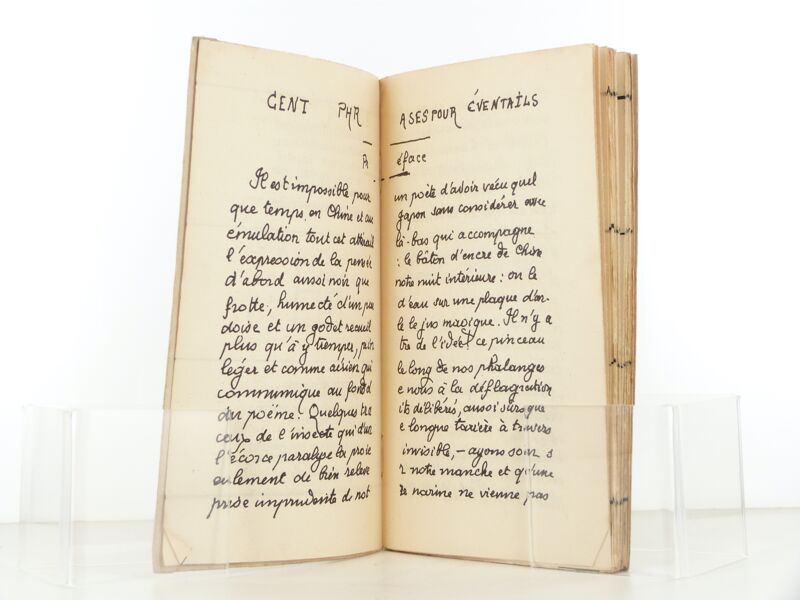 CENT PHRASES POUR ÉVENTAILS
Préface
Il est impossible pour un poète d'avoir vécu quel
que temps en Chine et au Japon sans considérer avec
émulation tout cet attirail là-bas qui accompagne
l'expression de la pensée : le bâton d'encre de Chine
d'abord aussi noir que notre nuit intérieure : on le
frotte, humecté d'un peu d'eau sur une plaque d'ar-
doise et un godet recueil le le jus magique. Il n'y a
plus qu'à y tremper, ce pinceau
léger et comme aérien qui le long de nos phalanges
communique au fond de nous à la déflagration
du poëme. Quelques traits délibérés, aussi sûrs que
coup de l'insecte qui d'une longue tarière à travers
l'écorce paralyse la proie invisible, — ayons soin s
eulement de bien relever notre manche et qu'une
prise imprudente de notre narine ne vienne pas